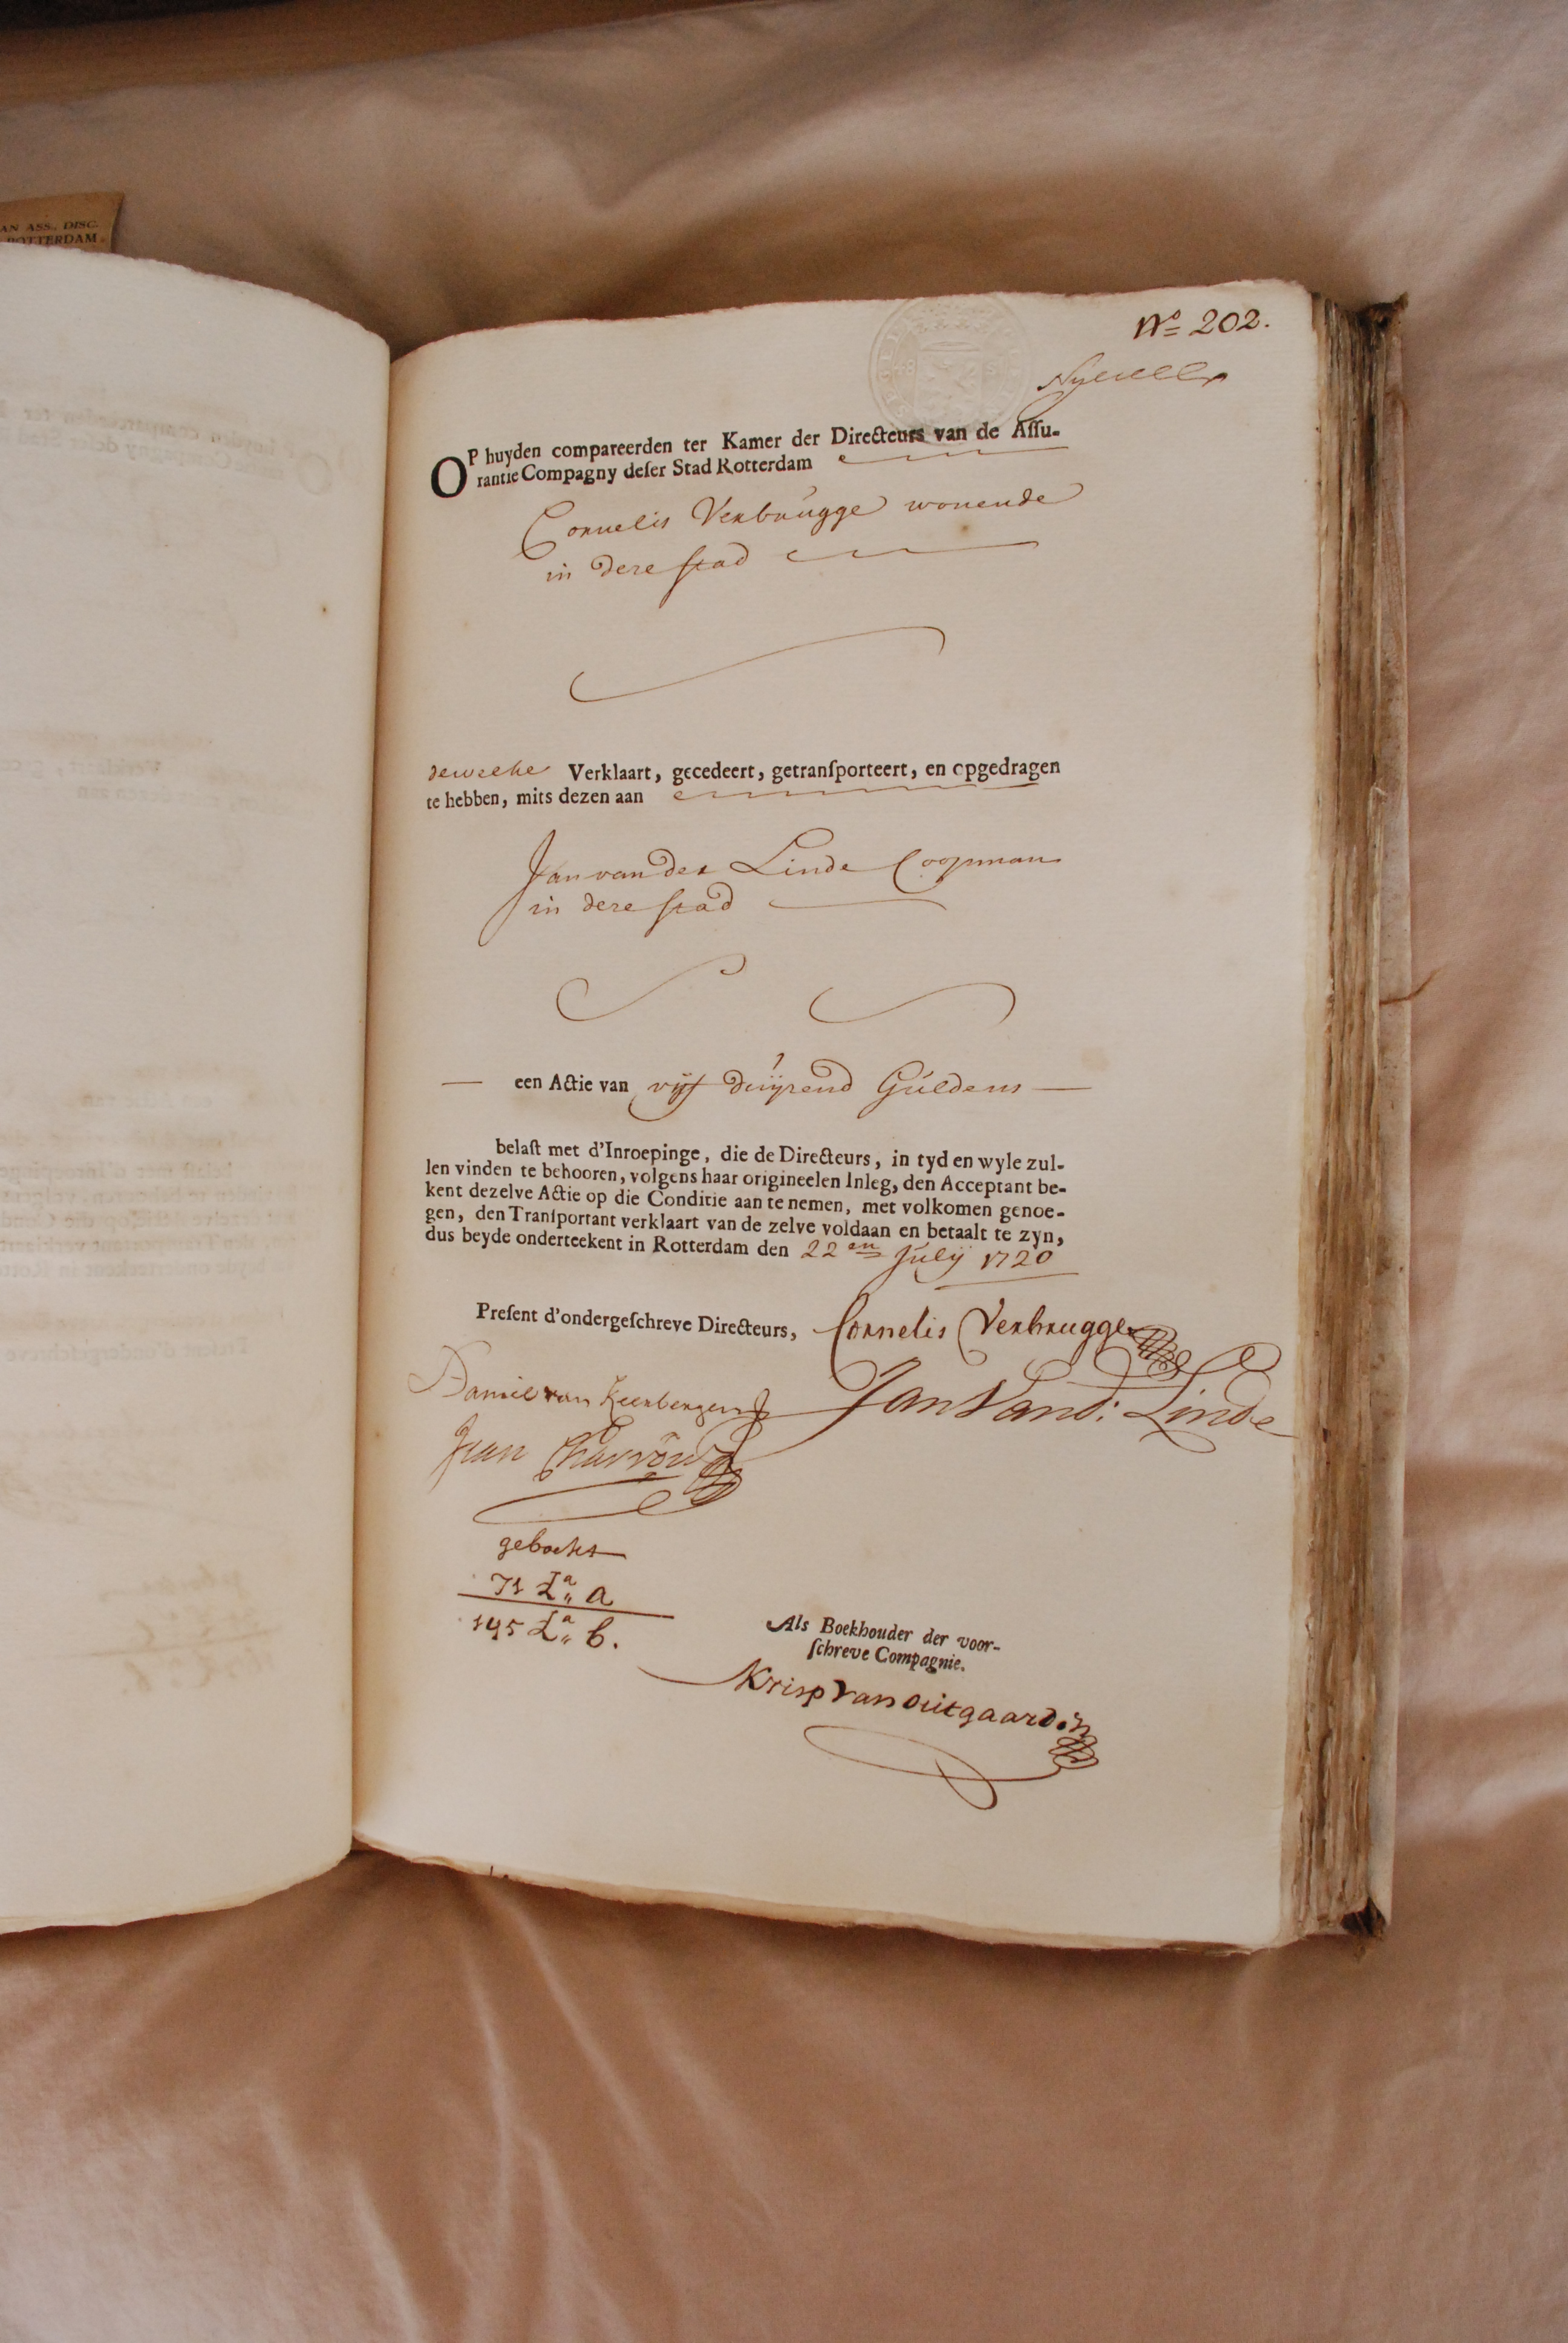 AN ASS., DISC.
ROTTERDAM
No 202.
OP huyden compareerden ter Kamer der Directeurs van de Assu-
rantie Compagny deser Stad Rotterdam
Cornelis Verbrugge wonende
in dese stad
dewelke Verklaart, gecedeert, getransporteert, en opgedragen
te hebben, mits dezen aan
Jan van der Linde Coopman
in dese stad
een Actie van vijf duijsend Guldens
belast met d'Inroepinge, die de Directeurs, in tyd en wyle zul-
len vinden te behooren, volgens haar origineelen Inleg, den Acceptant be-
kent dezelve Actie op die Conditie aan te nemen, met volkomen genoe-
gen, den Transportant verklaart van de zelve voldaan en betaalt te zyn,
dus beyde onderteekent in Rotterdam den 22en July 1720
Present d'ondergeschreve Directeurs, Cornelis Verbrugge
Daniel van Keerbergen Jan Vand: Linde
Jean
geboekt
71 La a
195 La b.
Als Boekhouder der voor-
schreve Compagnie.
Krisp van outgaarden